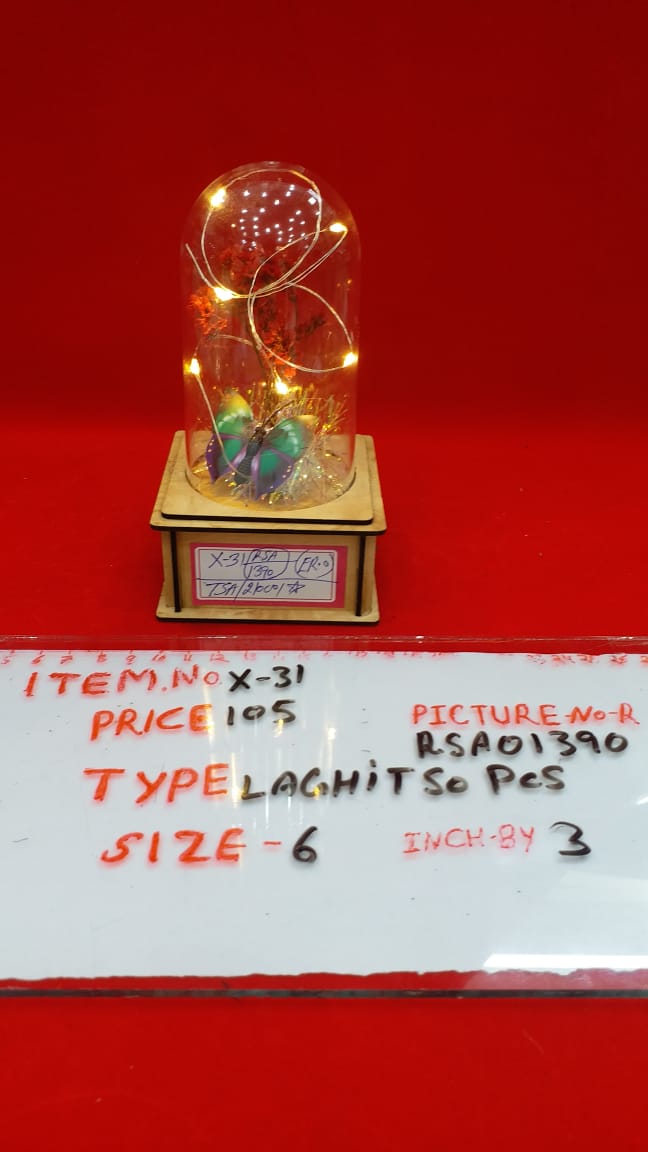 X-31 RSA 1390 ER.0
TSA/21001
ITEM.No X-31
PRICE 105
PICTURE-No-R
RSA01390
TYPE LAGHiT 50 PCS
SIZE-6 INCH-BY 3